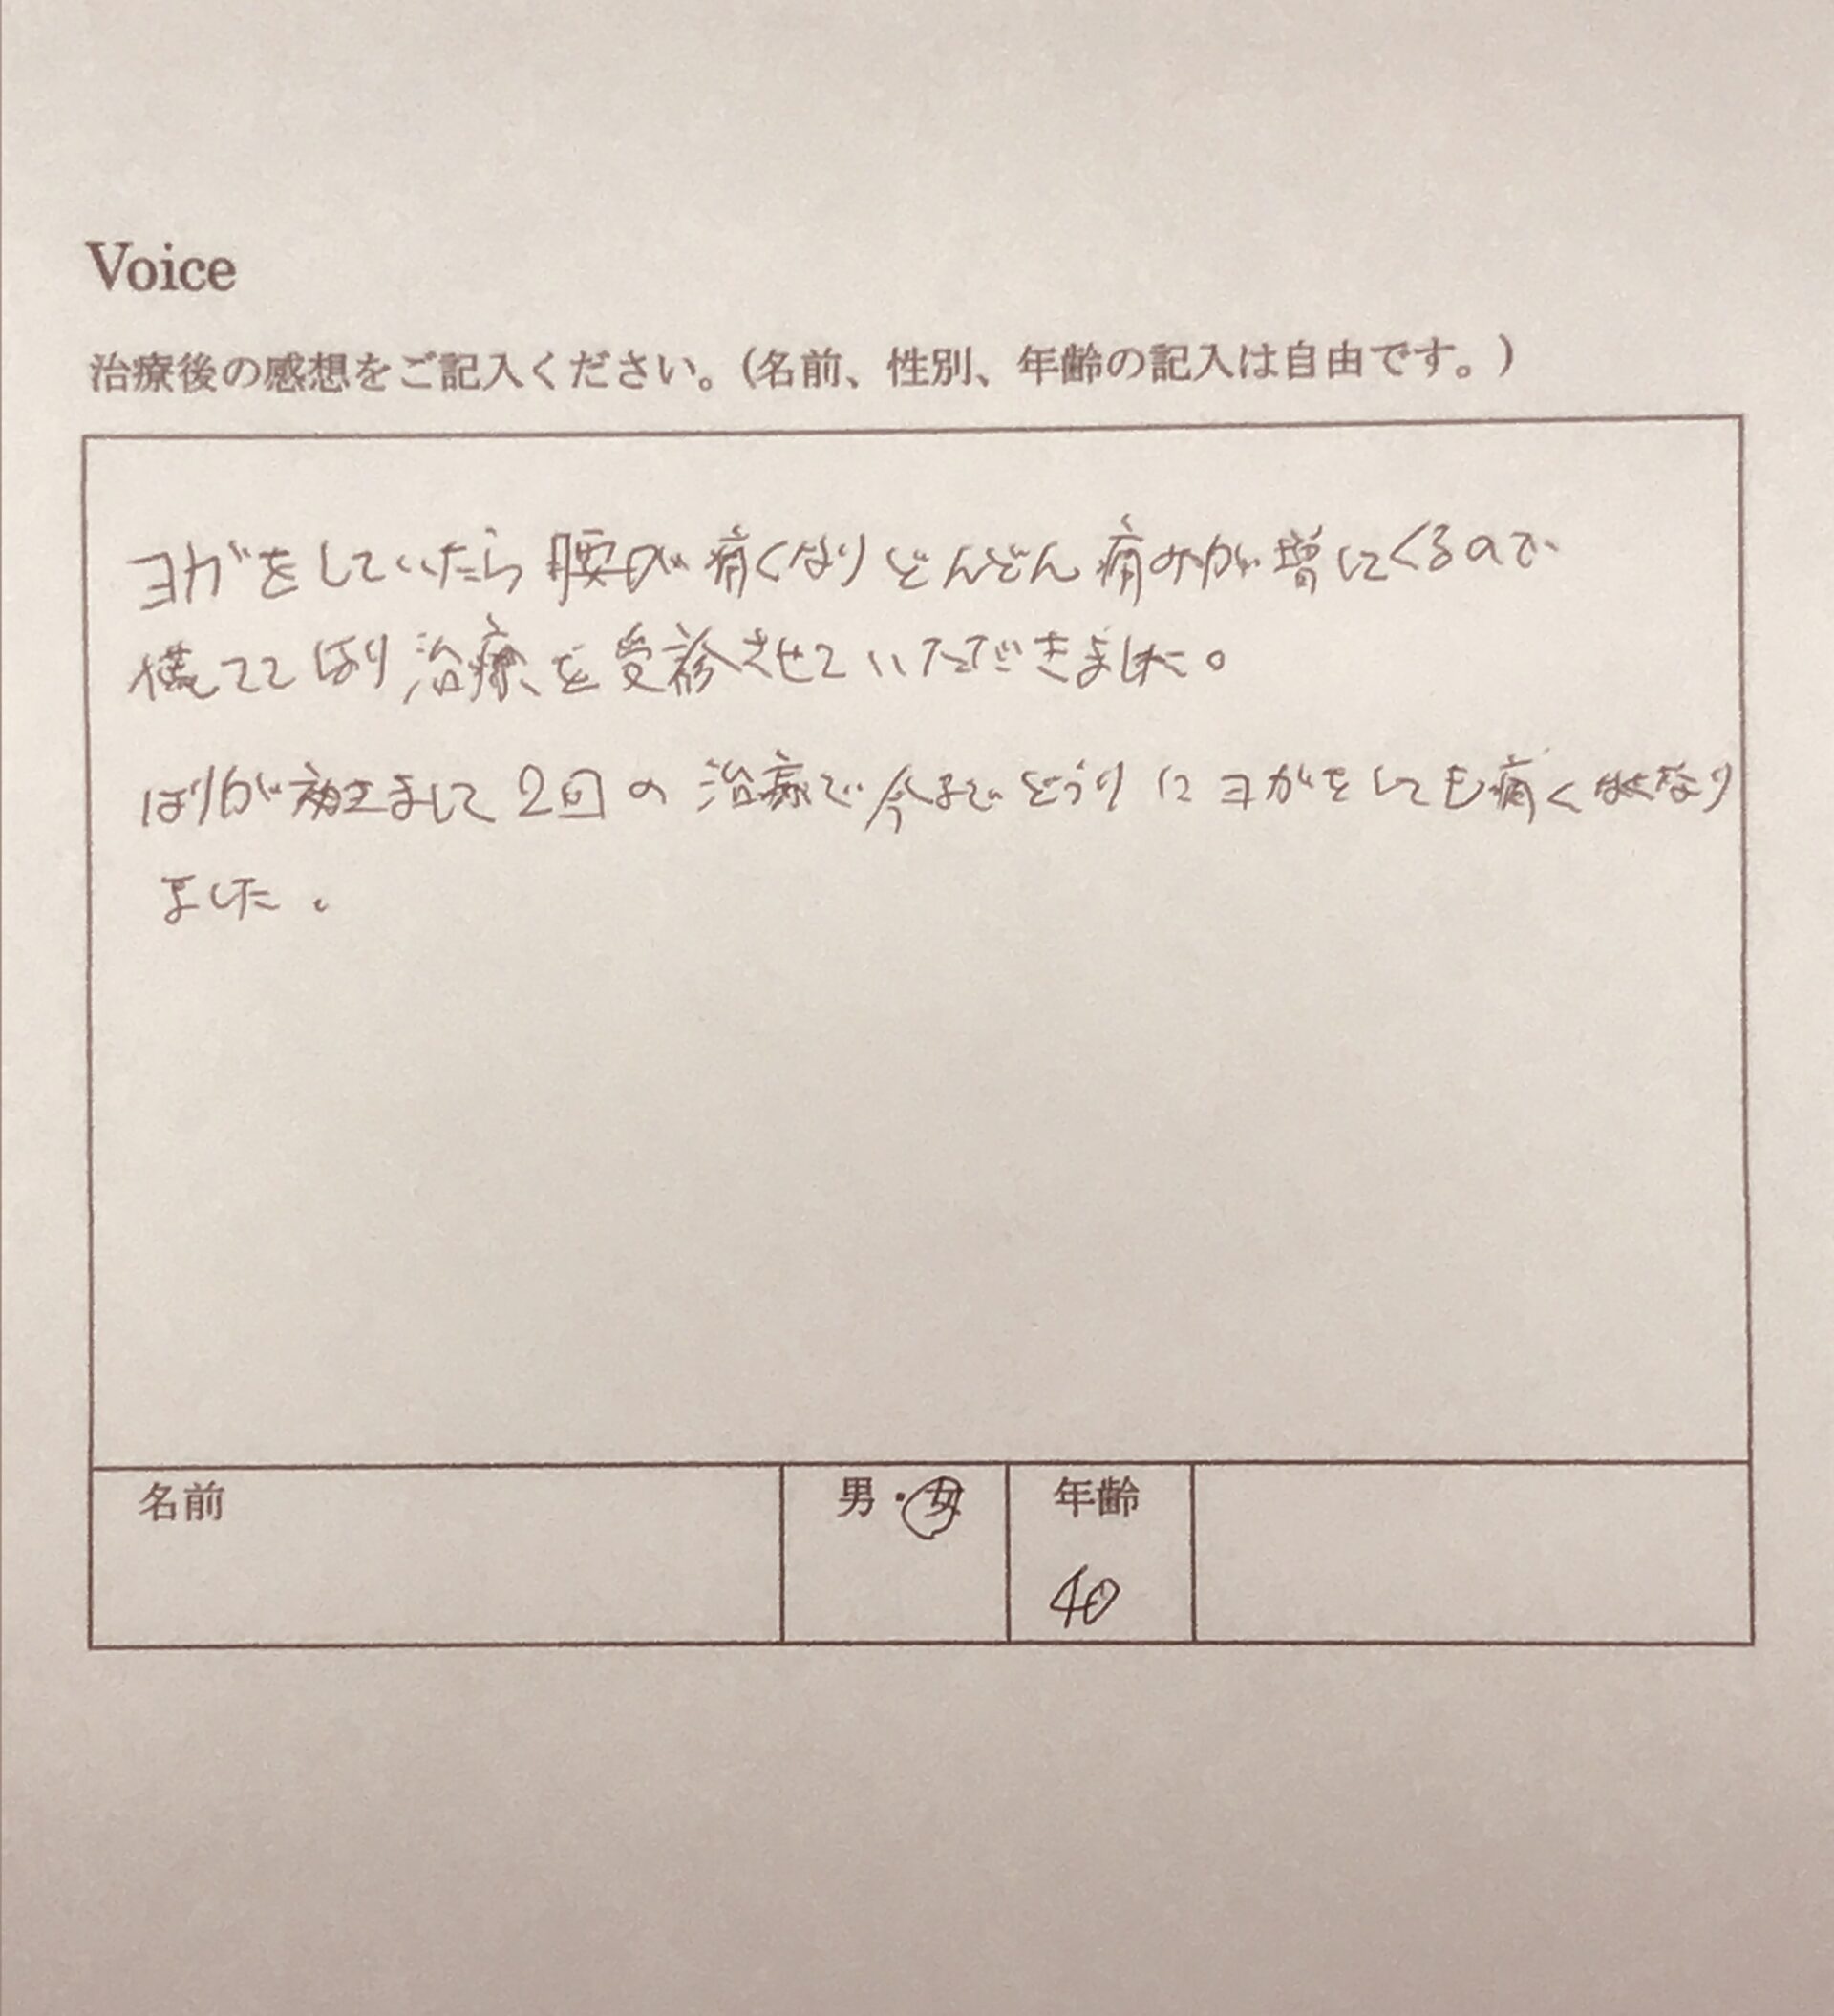 Voice
治療後の感想をご記入ください。(名前、性別、年齢の記入は自由です。)
ヨガをしていたら腰が痛くなりどんどん痛みが増してくるので
慌ててはり治療を受診させていただきました。
はりが効きまして2回の治療で今までどうりにヨガをしても痛くなくなり
ました。
名前
男・女
年齢
40